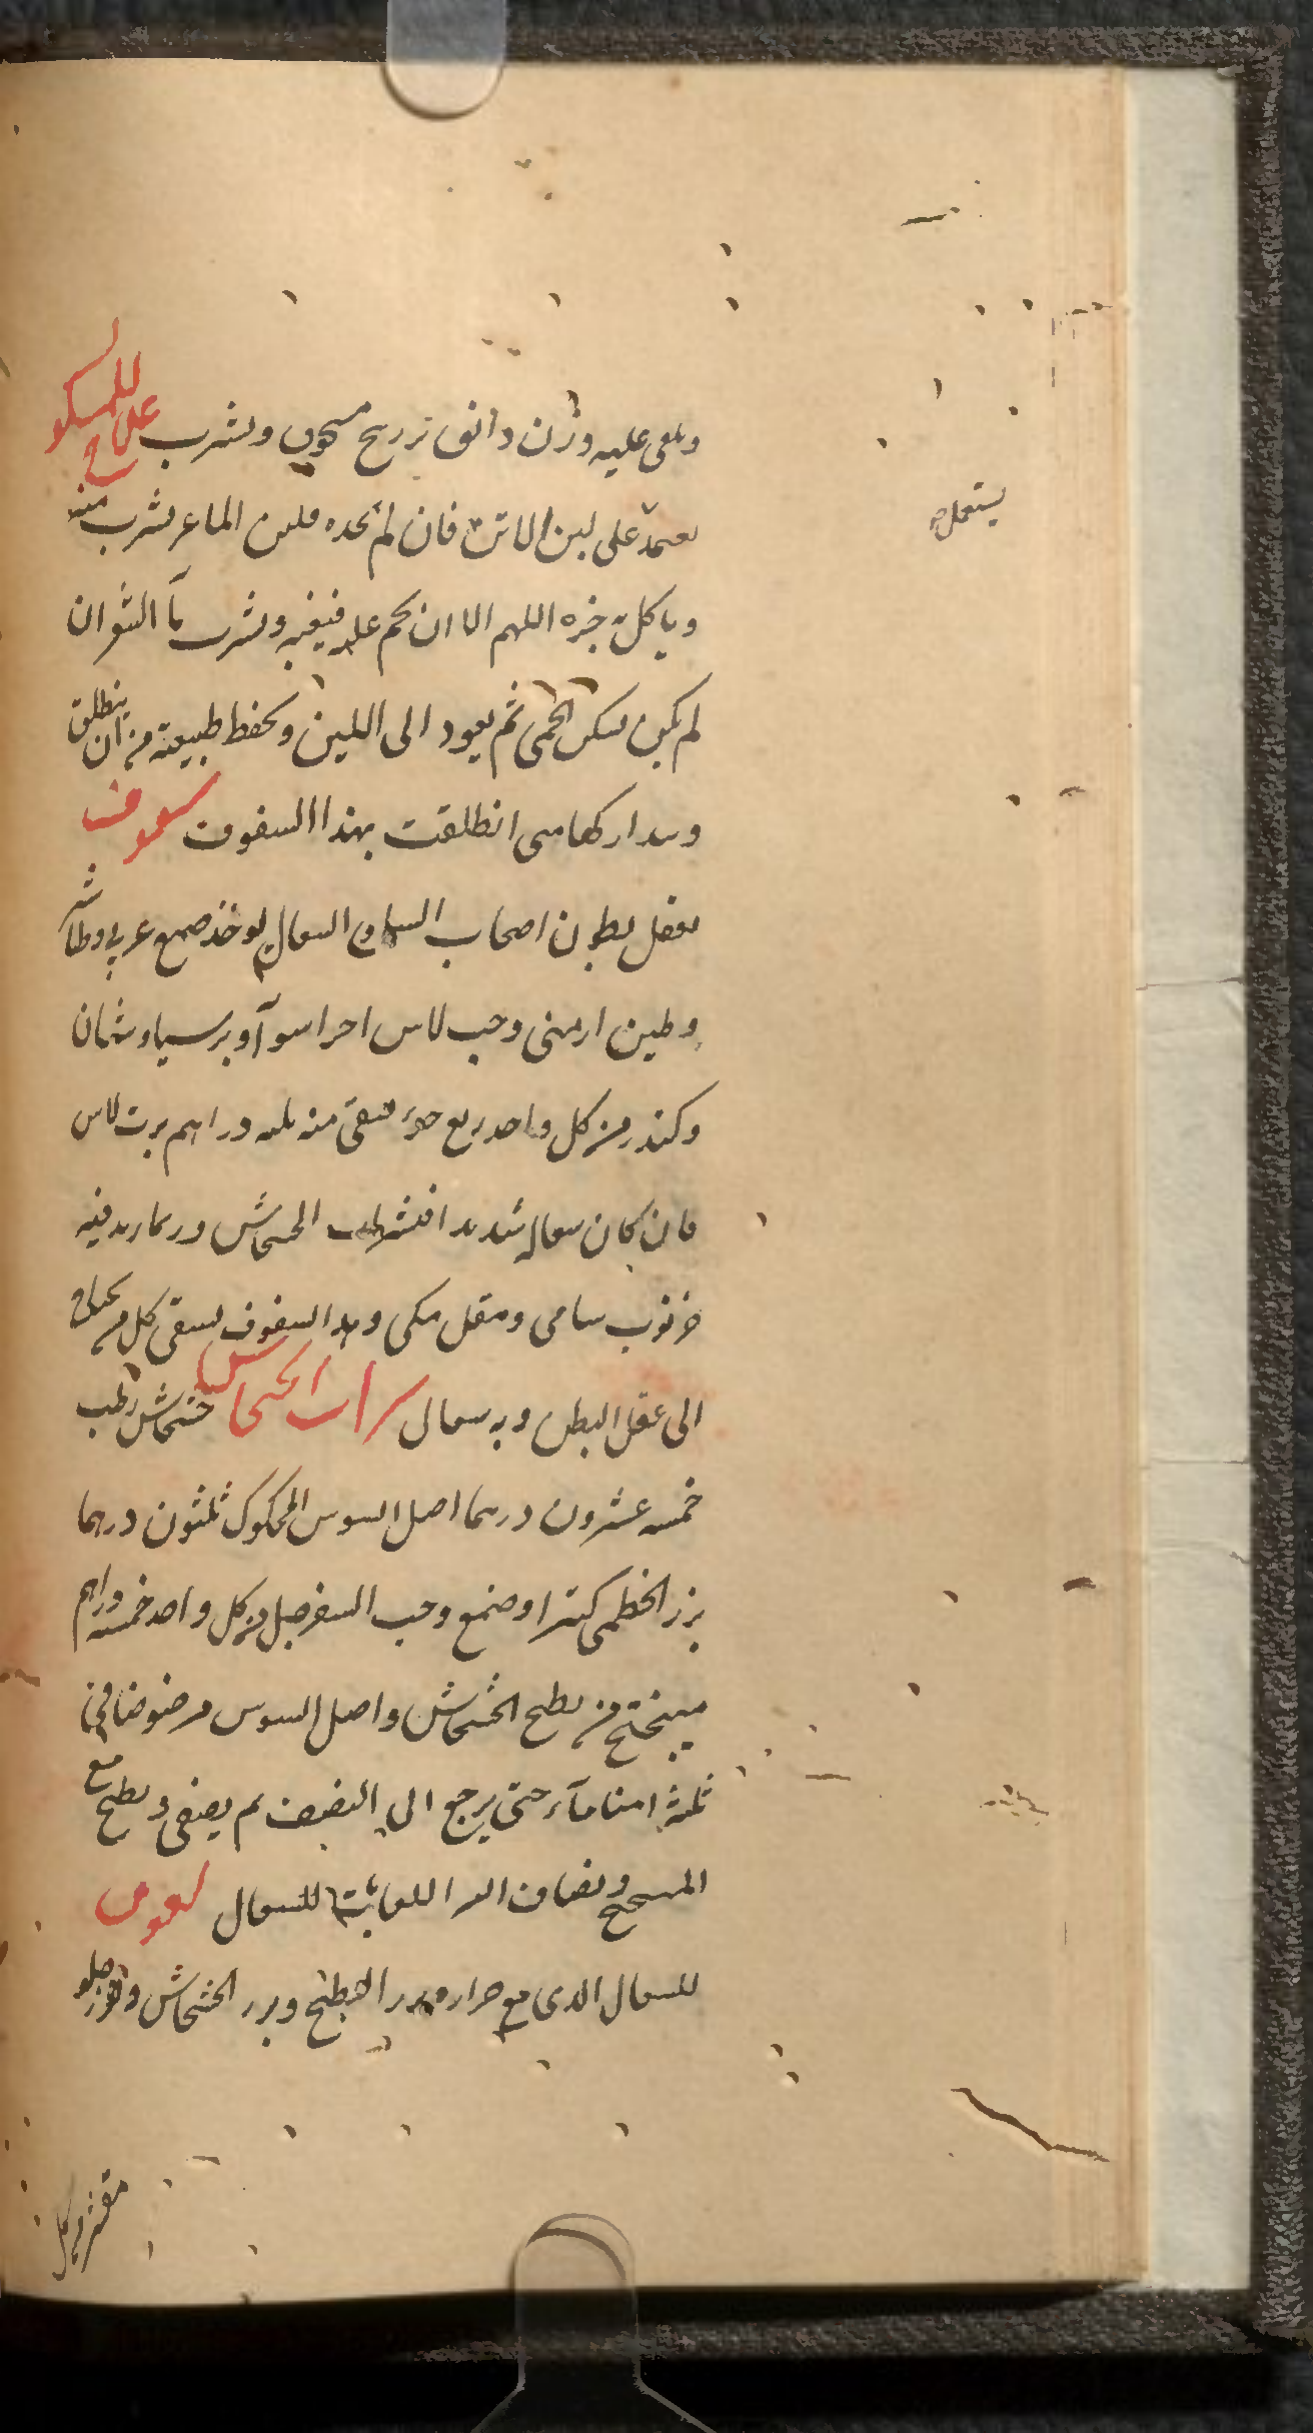 ويلقى عليه وزن دانق زرنيخ مسحوق ويشرب علاج للمسلول
يعتمد على لبن الاتن فان لم يجده فلبن الماعز يشرب منه
وياكل خبزه اللهم الا ان يحم عليه فيغبه ويشرب مآ الشعير ان
لم يكن لتسكن الحمى ثم يعود الى اللبن ويحفظ طبيعته من ان ينطلق
ويتداركها متى انطلقت بهذا السفوف سفوف
يعقل بطون اصحاب السل و السعال يوخذ صمغ عربي وطباشير
وطين ارمنى وحب لاس اجزا سوآ وبرسياوشان
وكندر من كل واحد ربع جزء فيسقى منه ثلثه دراهم برب لاس
فان كان سعاله شديدا فبشراب الخشخاش وربما زيد فيه
خرنوب شامى ومقل مكى وهذا السفوف يسقى كل من يحتاج
الى عقل البطن وبه سعال شراب الخشخاش خشخاش رطب
خمسه عشرون درهما اصل السوس المحكوك ثلثون درهما
بزر الخطمى كثيرا وصمغ وحب السفرجل من كل واحد خمسه دراهم
ميبختج من يطبخ الخشخاش واصل السوس مرضوضا فى
ثلثة امنا مآء حتى يرجع الى النصف ثم يصفى ويطبخ مع
الميبختج ويضاف اليه اللعابية للسعال لعوق
للسعال الذى مع حراره بزر البطيخ وبزر الخشخاش ولوز حلو
مقشر من كل
يستعمل